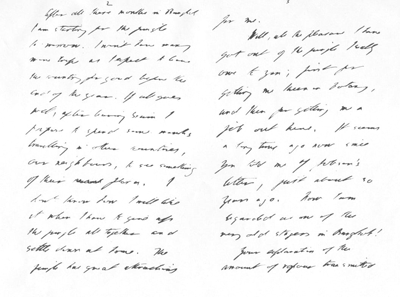 2
After all these months in Bangkok
I am starting for the jungle
to-morrow. I won't have many
more trips as I expect to leave
the country for good before the
end of the year. If all goes
well, after leaving Siam I
propose to spend some months
travelling in other countries,
our neighbours, to see something
of them. I
don't know how I will like
it when I have to give up
the jungle all together and
settle down at home. The
jungle has great attractions
for me.
Well, all the pleasure I have
got out of the jungle I really
owe to you; first for
getting me interested in botany,
and then for getting me a
job out here. It seems
a long time ago now since
you told me of
letter, just about 30
years ago. Now I am
regarded as one of the
very old stagers in Bangkok!
Your explanation of the
amount of